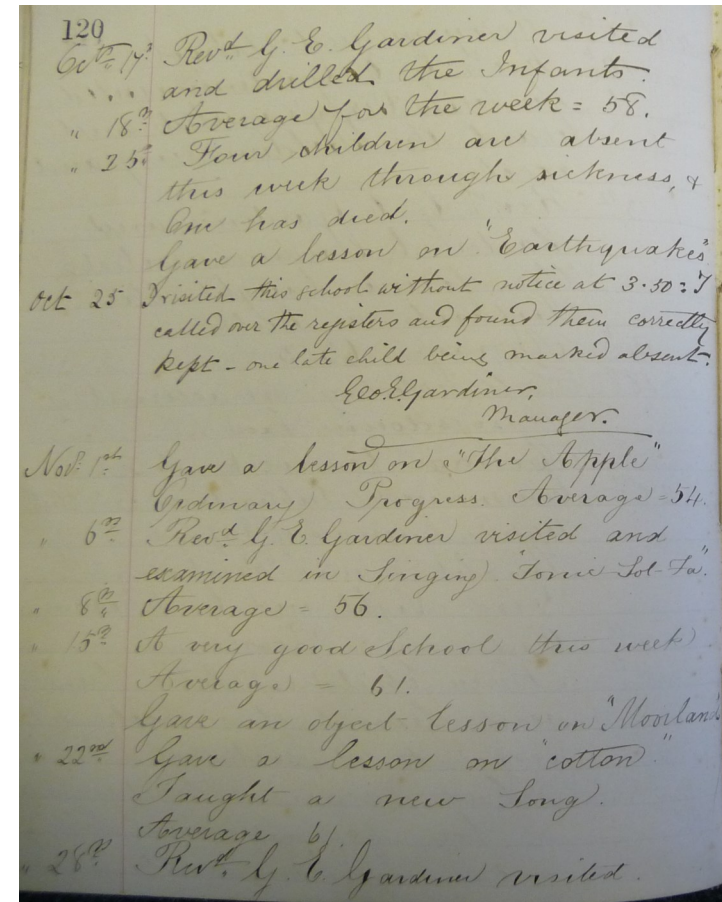 120
Octr 17th Revd. G. E. Gardiner visited
and drilled the Infants.
" 18th Average for the week = 58.
" 25th Four children are absent
this week through sickness, &
One has died.
Gave a lesson on "Earthquakes"
Oct 25 I visited this school without notice at 3.50: I
called over the registers and found them correctly
kept - one late child being marked absent.
Geo. E. Gardiner,
Manager.
Novr. 1st Gave a lesson on "The Apple"
Ordinary Progress. Average = 54.
" 6th Revd. G. E. Gardiner visited and
examined in Singing "Tonic Sol-Fa".
" 8th Average = 56.
" 15th A very good School this week
Average = 61.
Gave an object lesson on "Moorland
" 22nd Gave a lesson on "cotton"
Taught a new Song.
Average 61
" 28th Revd. G. E. Gardiner visited.